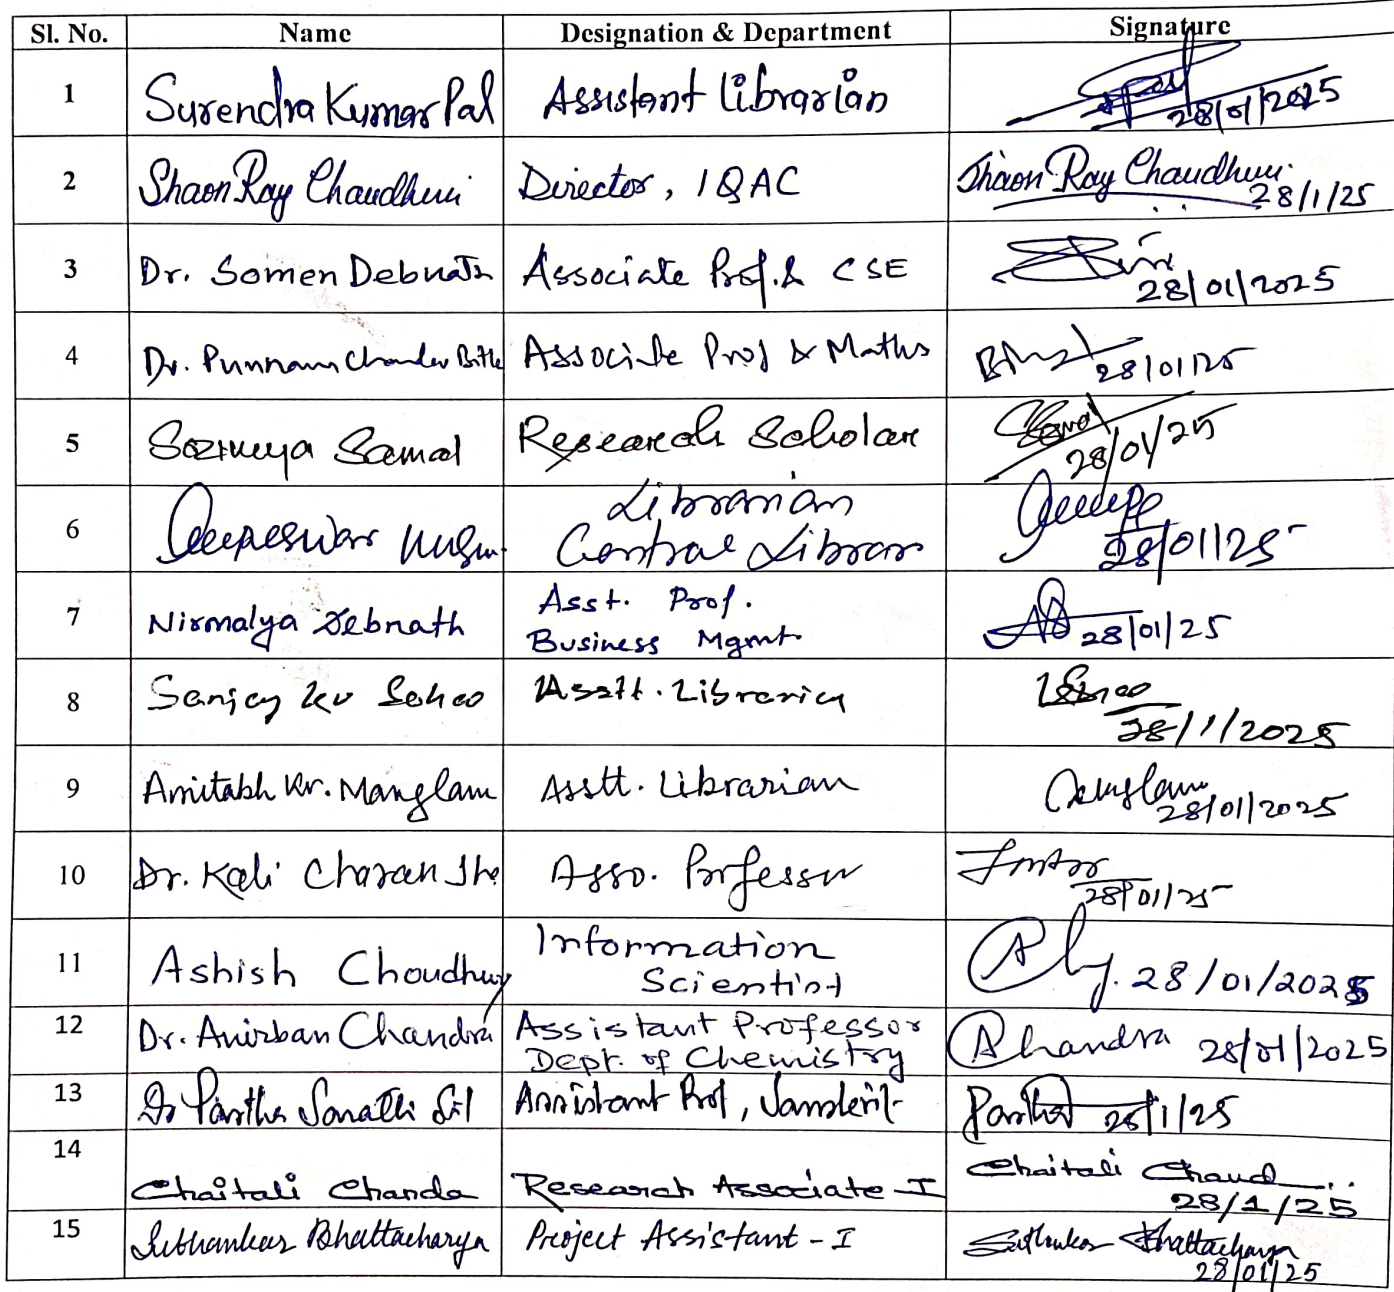 Sl. No. Name Designation & Department Signature
1 Surendra Kumar Pal Assistant Librarian 28/01/2025
2 Shaon Ray Chaudhuri Director, IQAC Shaon Ray Chaudhuri 28/1/25
3 Dr. Somen Debnath Associate Prof. & CSE 28/01/2025
4 Dr. Punnam Chander Associate Prof & Maths 28/01/25
5 Samal Research Scholar 28/01/25
6 Librarian
Central Library 28/01/25
7 Nirmalya Debnath Asst. Prof.
Business Mgmt. 28/01/25
8 Sanjay Ku Sahoo Asstt. Librarian 28/1/2025
9 Amitabh Kr. Manglam Asstt. Librarian Manglam 28/01/2025
10 Dr. Kali Charan Jha Asso. Professor 28/01/25
11 Ashish Choudhury Information
Scientist 28/01/2025
12 Dr. Anirban Chandra Assistant Professor
Dept. of Chemistry AChandra 28/01/2025
13 Dr Partha Sarathi Sil Assistant Prof, Sanskrit Partha 28/1/25
14 Chaitali Chanda Research Associate-I Chaitali Chand 28/1/25
15 Subhankar Bhattacharya Project Assistant - I Subhankar Bhattacharya 28/01/25